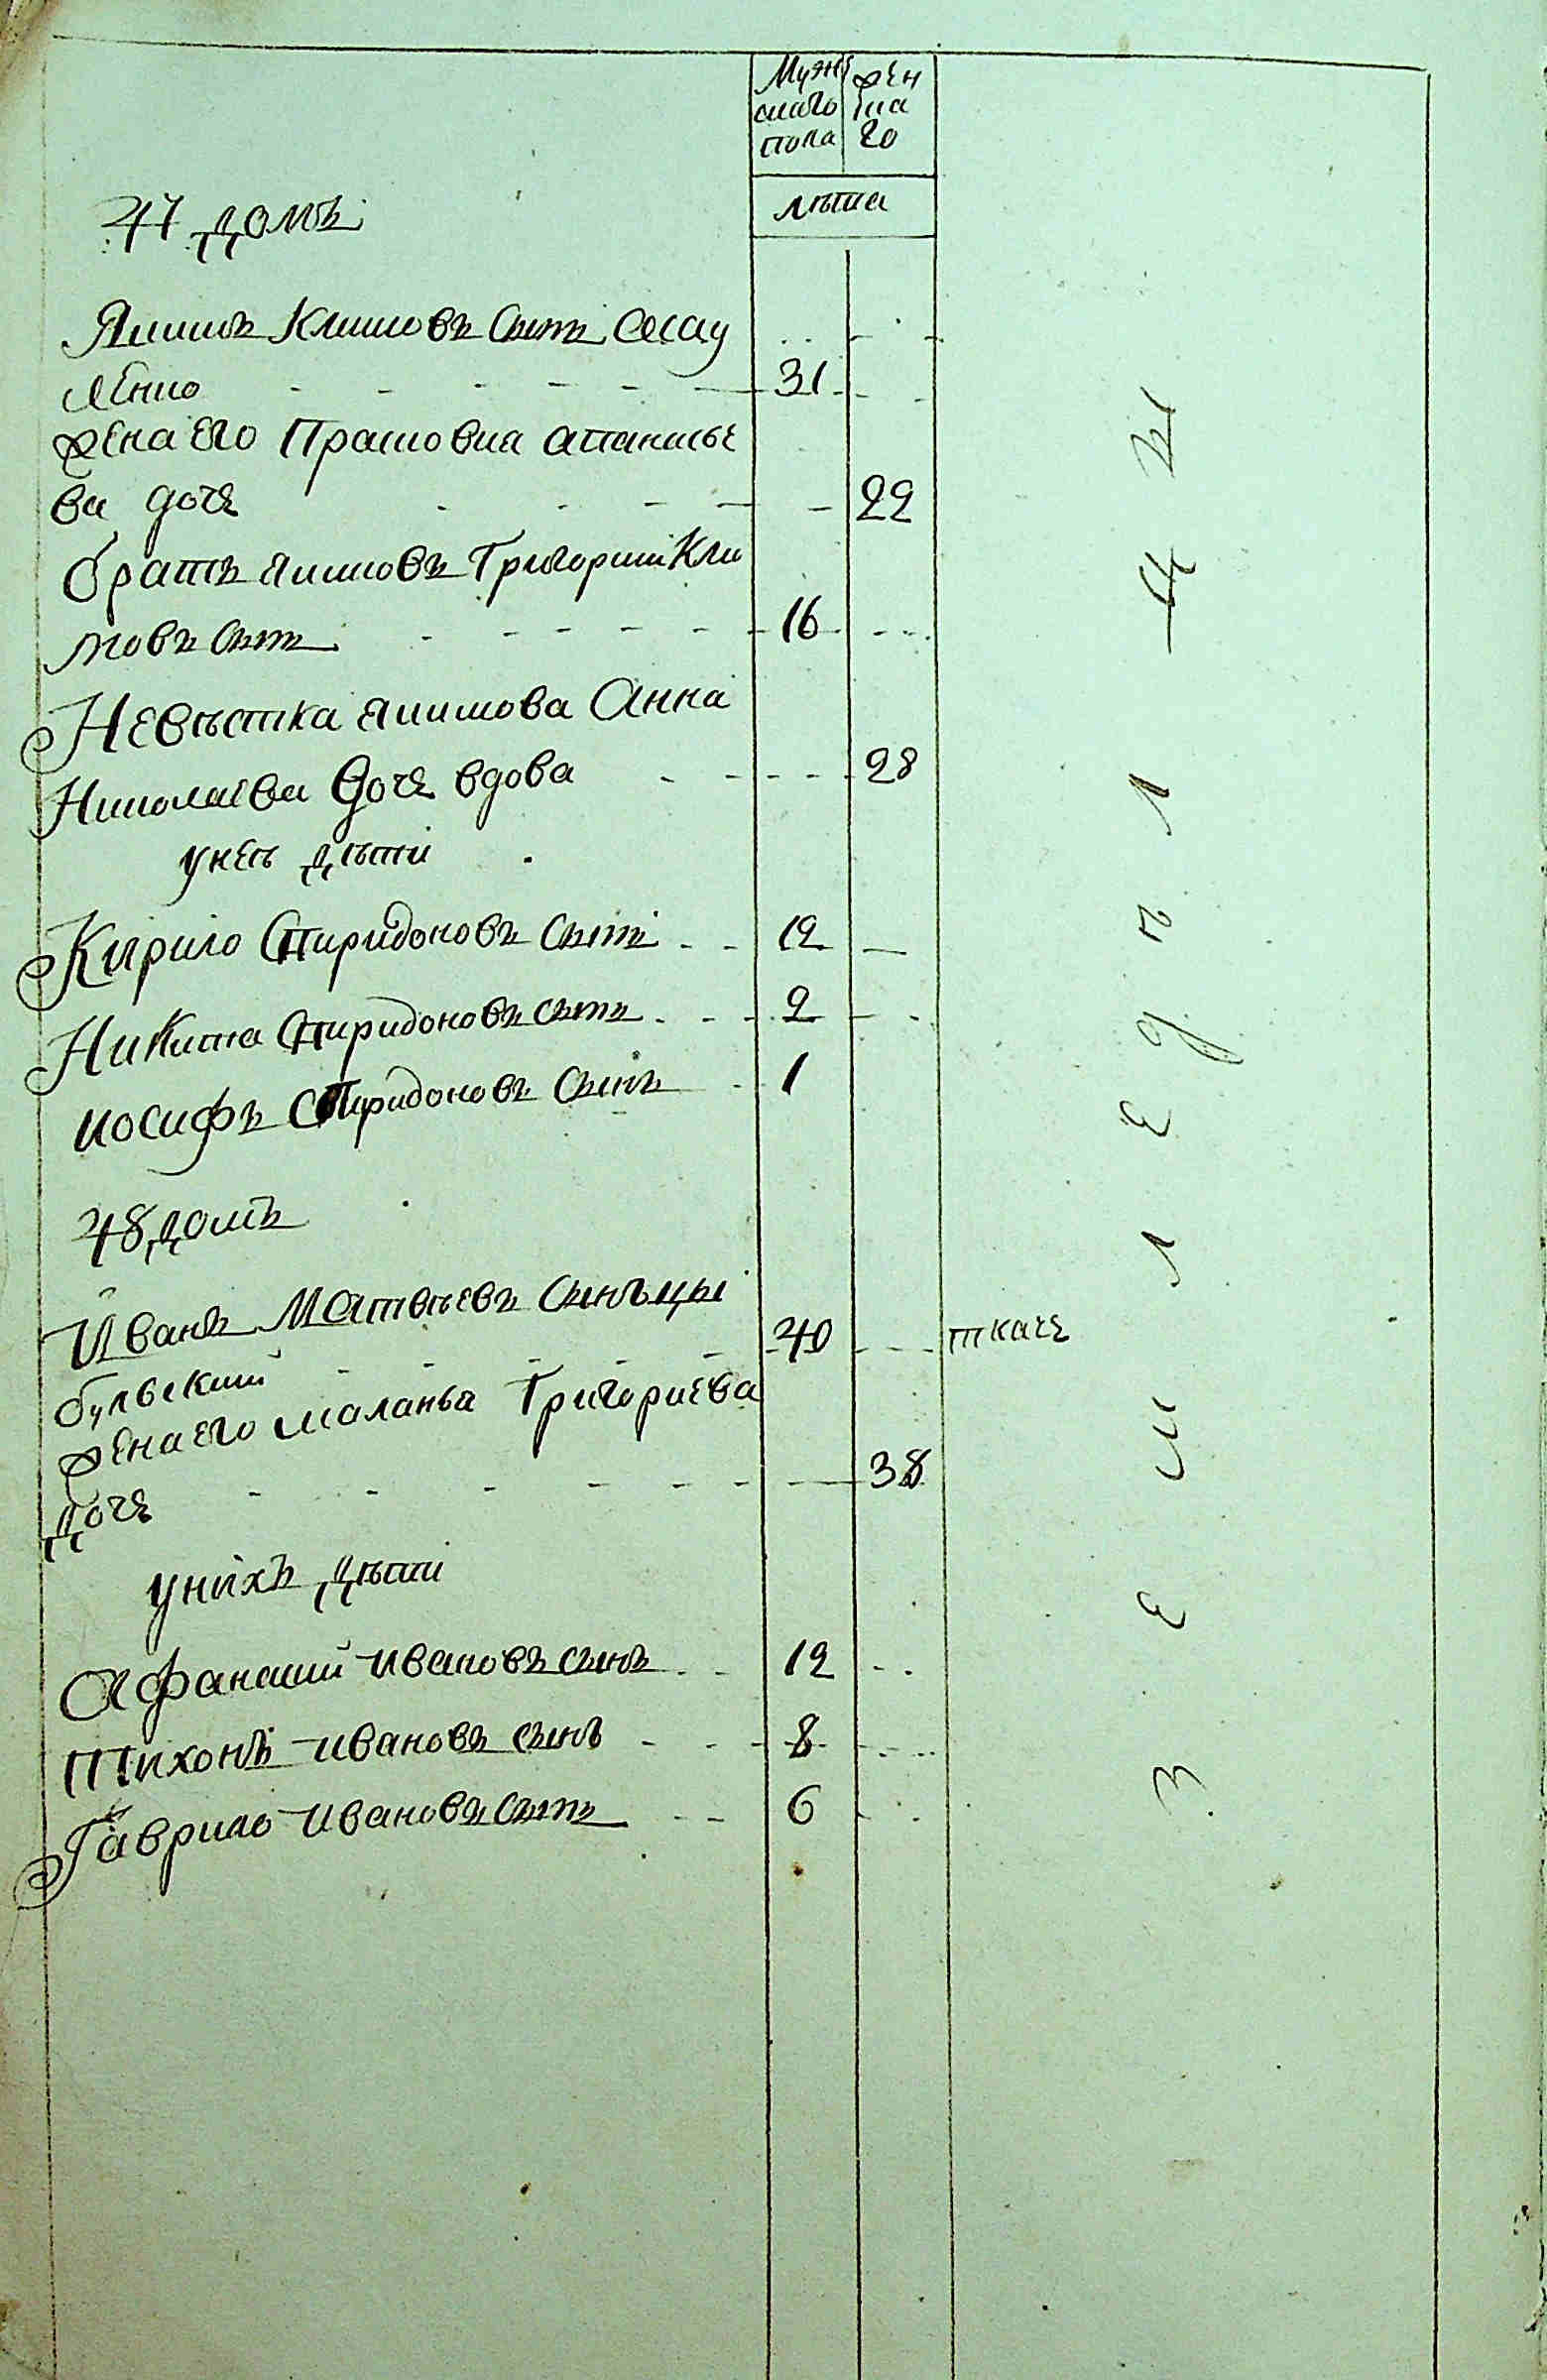 Мужскаго пола
Женскаго
лѣта
47 домъ
Якимъ Климовъ сынъ Есау
ленко 31
жена его Прасковия апанасье
ва дочь 22
братъ якимовъ Григорий Кли
мовъ сынъ 16
Невѣстка якимова Анна
Николаева дочь вдова 28
у неѣ дѣти
Кирило Спиридоновъ сынъ 12
Никита Спиридоновъ сынъ 2
иосифъ Спиридоновъ сынъ 1
48 домъ
Иванъ Матвѣевъ сынъ цы
булвский 40 ткачь
жена его маланья Григориева
дочь 38
у нихъ дѣти
Афанасий ивановъ сынъ 12
Тихонъ ивановъ сынъ 8
Гаврило ивановъ сынъ 6
земледѣлцы